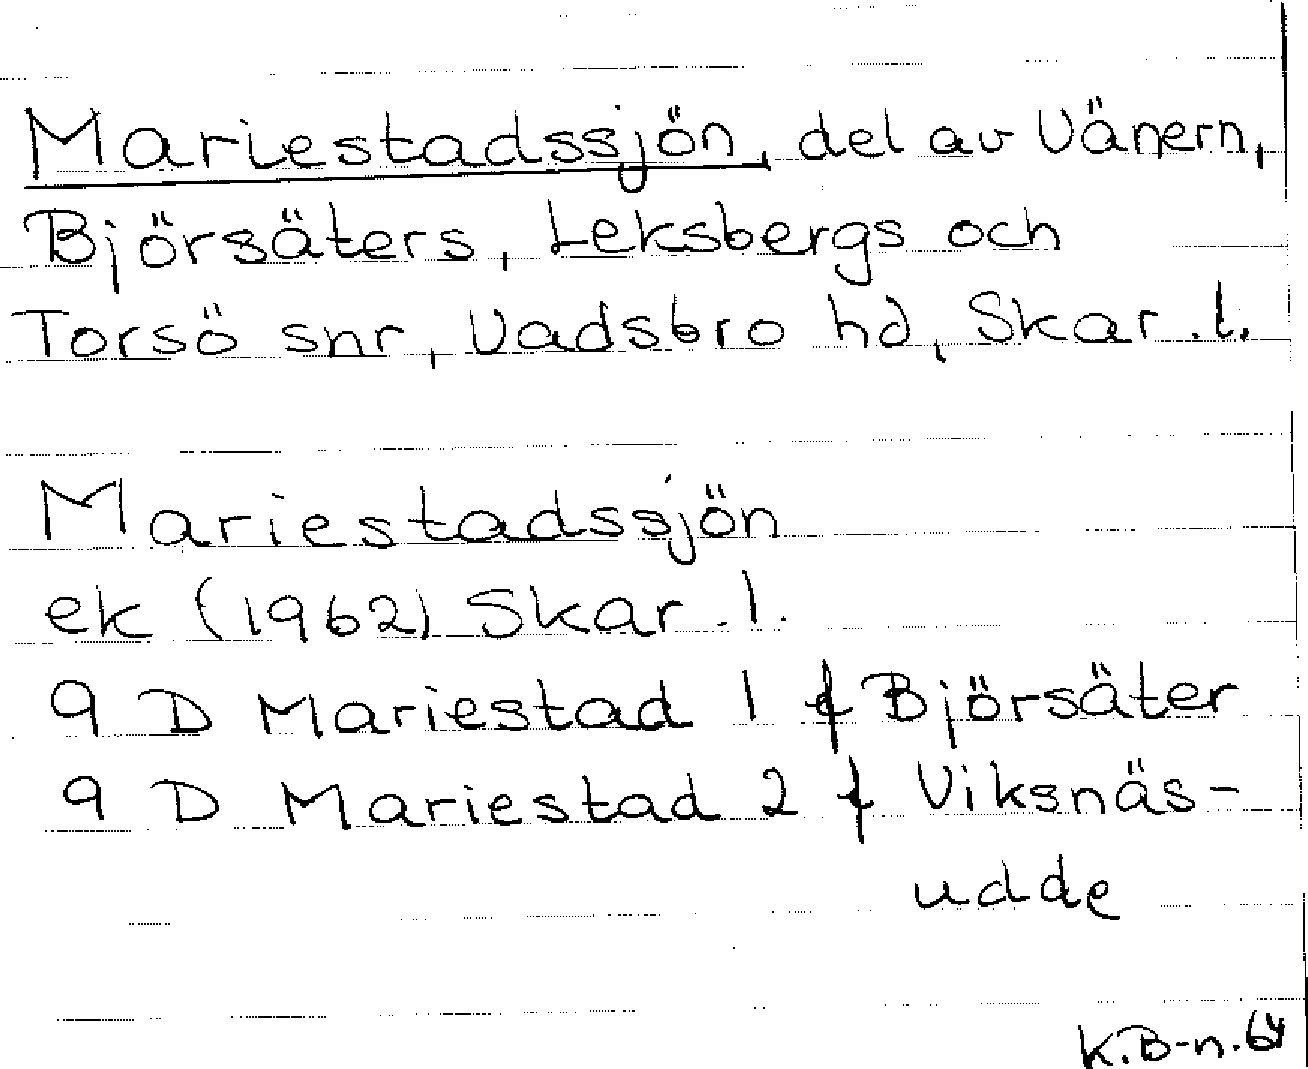 Mariestadssjön, del av Vänern,
Björsäters, Leksbergs och
Torsö snr, Vadsbro hd, Skar. l.
Mariestadssjön
ek (1962) Skar. l.
9 D Mariestad 1 f Björsäter
9 D Mariestad 2 f Viksnäs-
udde
K.B-n. 64